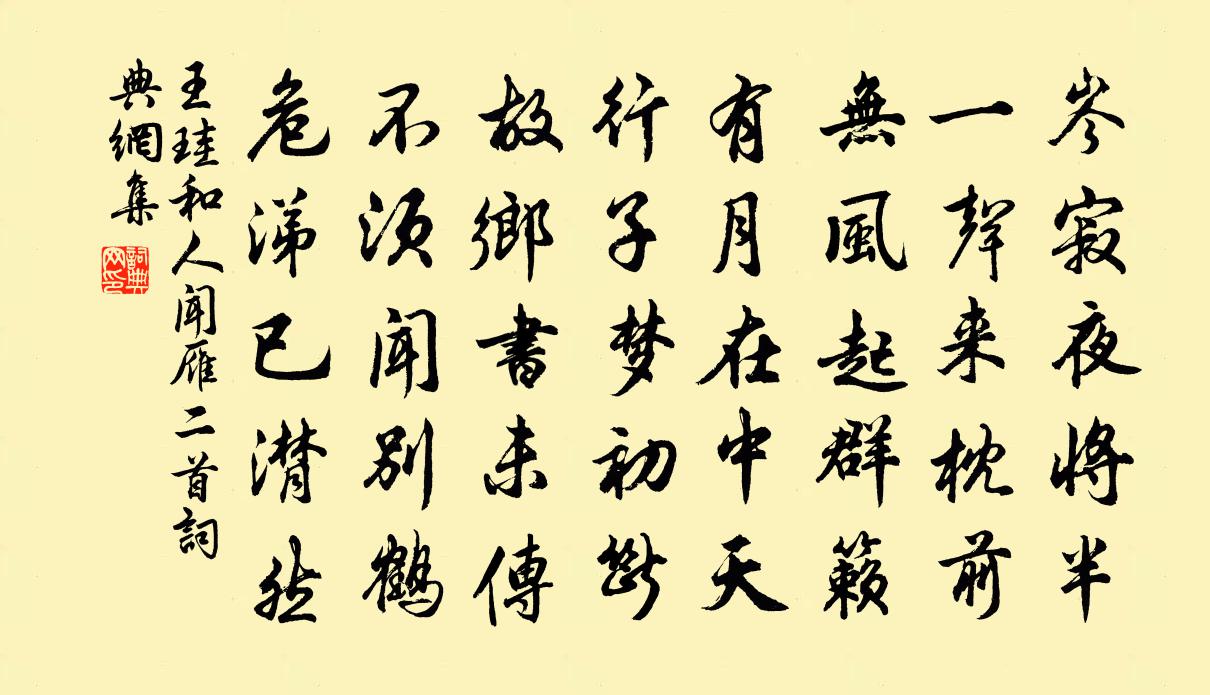 岑寂夜将半
一聲来枕前
無風起群籟
有月在中天
行子梦初断
故鄉書未傳
不須聞别鶴
危涕已潸然
王珪和人聞雁二首詞
典網集
詞典
网印